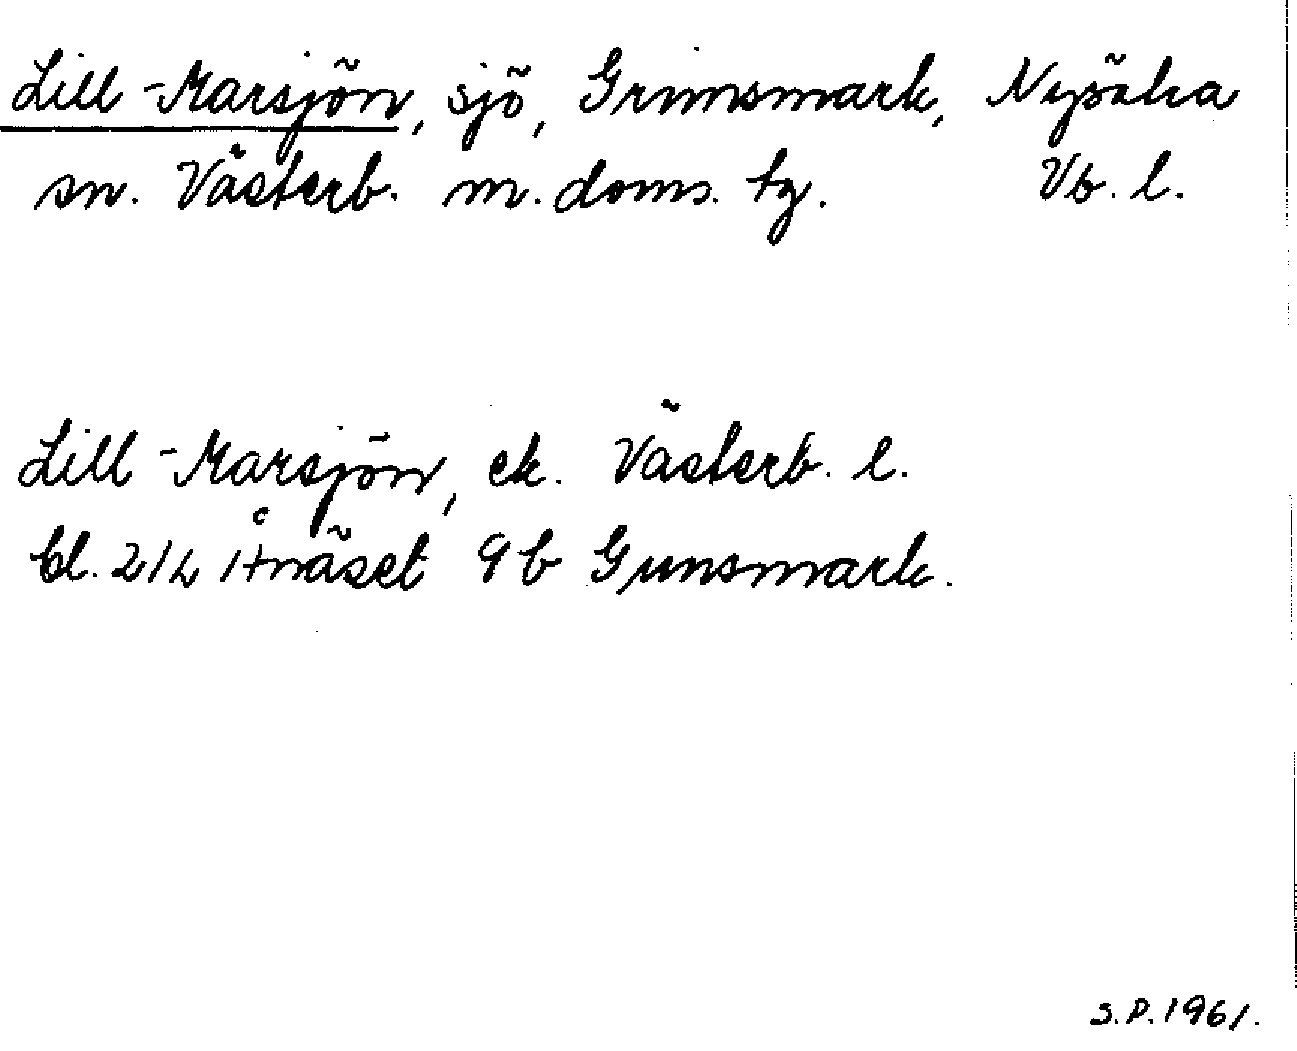 Lill-Marsjön, sjö, Grimsmark, Nysätra
sn. Västerb. m. doms. tg. Vb. l.
Lill-Marsjön, ek. Västerb. l.
bl. 21L Ånäset 9b Gunsmark.
S.P. 1961.